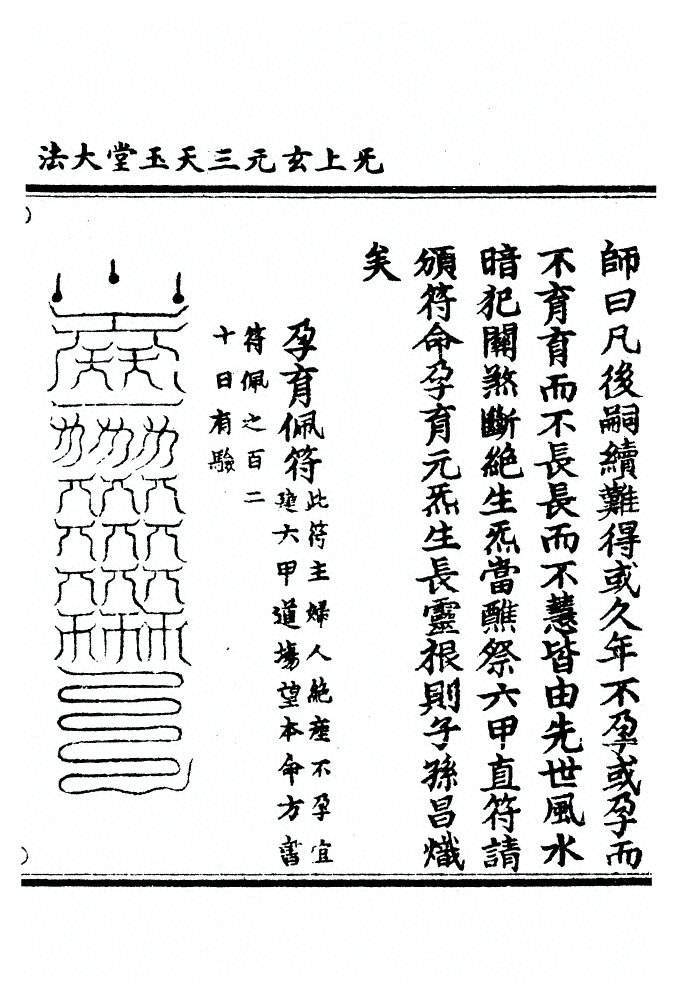 法大堂玉天三元玄上旡
師曰凡後嗣續難得或久年不孕或孕而
不育育而不長長而不慧皆由先世風水
暗犯關煞斷絶生炁當醮祭六甲直符請
頒符命孕育元炁生長靈根則子孫昌熾
矣
孕育佩符
此符主婦人絶産不孕宜
建六甲道場望本命方書
符佩之百二
十日有驗